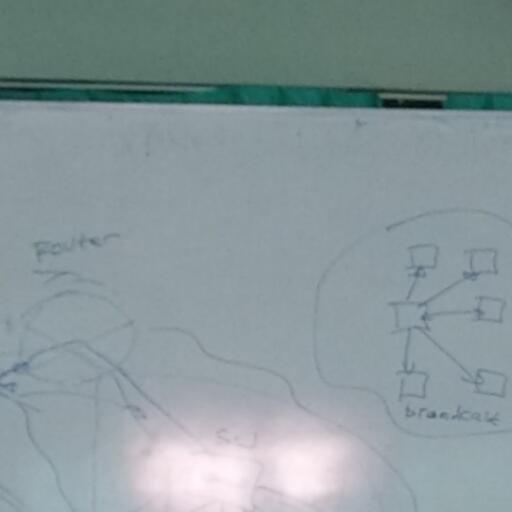 Router
broadcast